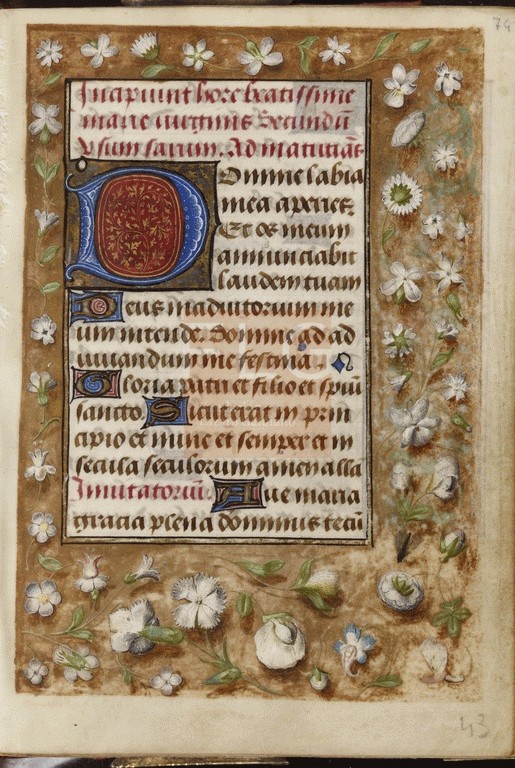 74
Incipiunt hore beatissime
marie virginis Secundũ
Vsum sarum. Ad matutinas
Domine labia
mea aperies
Et os meum
annunciabit
laudem tuam
Deus in adiutorium me
um intende. Domine ad ad
iuuandum me festina
Gloria patri et filio et spiũ
sancto Sicut erat in prin
cipio et nunc et semper et in
secula seculorum amen alla
Inuitatoriũ. Aue maria
gracia plena dominus tecũ
43